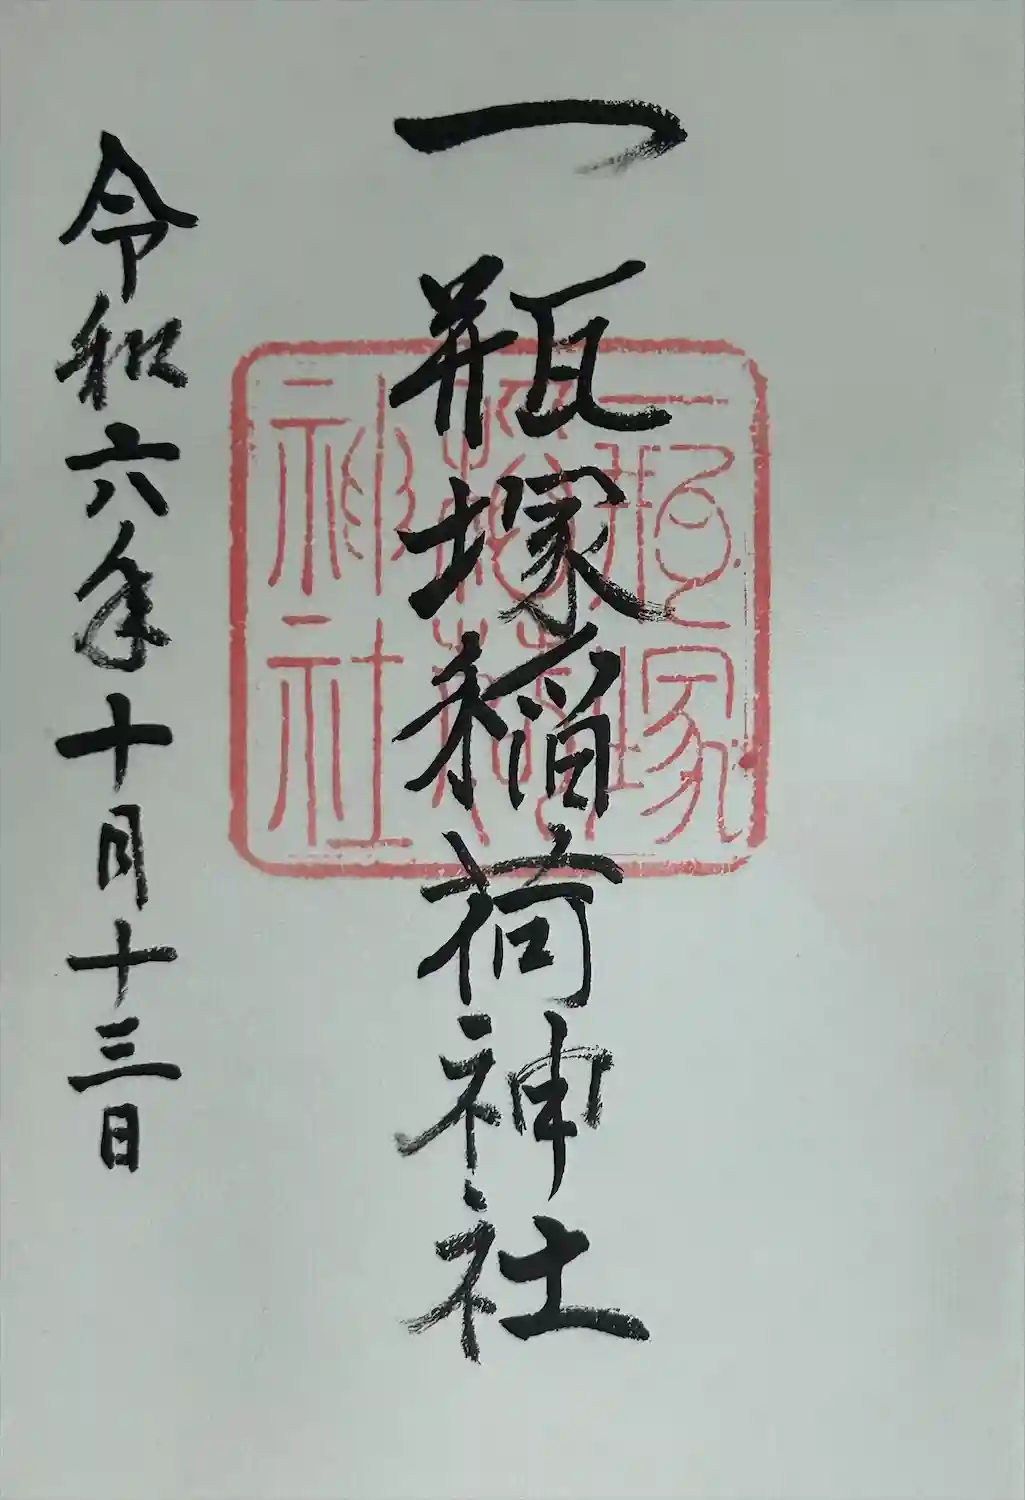 一瓶塚稲荷神社
令和六年十月十三日
一瓶塚稲荷神社